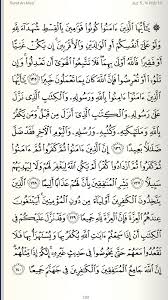 Surat An-Nisa'
۞ يَٰٓأَيُّهَا ٱلَّذِينَ ءَامَنُوا۟ كُونُوا۟ قَوَّٰمِينَ بِٱلْقِسْطِ شُهَدَآءَ لِلَّهِ
وَلَوْ عَلَىٰٓ أَنفُسِكُمْ أَوِ ٱلْوَٰلِدَيْنِ وَٱلْأَقْرَبِينَ ۚ إِن يَكُنْ غَنِيًّا
أَوْ فَقِيرًا فَٱللَّهُ أَوْلَىٰ بِهِمَا ۖ فَلَا تَتَّبِعُوا۟ ٱلْهَوَىٰٓ أَن تَعْدِلُوا۟ ۚ وَإِن
تَلْوُۥٓا۟ أَوْ تُعْرِضُوا۟ فَإِنَّ ٱللَّهَ كَانَ بِمَا تَعْمَلُونَ خَبِيرًا ١٣٥
يَٰٓأَيُّهَا ٱلَّذِينَ ءَامَنُوٓا۟ ءَامِنُوا۟ بِٱللَّهِ وَرَسُولِهِۦ وَٱلْكِتَٰبِ ٱلَّذِى نَزَّلَ
عَلَىٰ رَسُولِهِۦ وَٱلْكِتَٰبِ ٱلَّذِىٓ أَنزَلَ مِن قَبْلُ ۚ وَمَن يَكْفُرْ
بِٱللَّهِ وَمَلَٰٓئِكَتِهِۦ وَكُتُبِهِۦ وَرُسُلِهِۦ وَٱلْيَوْمِ ٱلْءَاخِرِ فَقَدْ ضَلَّ
ضَلَٰلًۢا بَعِيدًا ١٣٦ إِنَّ ٱلَّذِينَ ءَامَنُوا۟ ثُمَّ كَفَرُوا۟ ثُمَّ ءَامَنُوا۟
ثُمَّ كَفَرُوا۟ ثُمَّ ٱزْدَادُوا۟ كُفْرًا لَّمْ يَكُنِ ٱللَّهُ لِيَغْفِرَ لَهُمْ وَلَا لِيَهْدِيَهُمْ
سَبِيلًۢا ١٣٧ بَشِّرِ ٱلْمُنَٰفِقِينَ بِأَنَّ لَهُمْ عَذَابًا أَلِيمًا ١٣٨ ٱلَّذِينَ
يَتَّخِذُونَ ٱلْكَٰفِرِينَ أَوْلِيَآءَ مِن دُونِ ٱلْمُؤْمِنِينَ ۚ أَيَبْتَغُونَ
عِندَهُمُ ٱلْعِزَّةَ فَإِنَّ ٱلْعِزَّةَ لِلَّهِ جَمِيعًا ١٣٩ وَقَدْ نَزَّلَ عَلَيْكُمْ فِى
ٱلْكِتَٰبِ أَنْ إِذَا سَمِعْتُمْ ءَايَٰتِ ٱللَّهِ يُكْفَرُ بِهَا وَيُسْتَهْزَأُ بِهَا فَلَا
تَقْعُدُوا۟ مَعَهُمْ حَتَّىٰ يَخُوضُوا۟ فِى حَدِيثٍ غَيْرِهِۦٓ ۚ إِنَّكُمْ إِذًا مِّثْلُهُمْ ۗ
إِنَّ ٱللَّهَ جَامِعُ ٱلْمُنَٰفِقِينَ وَٱلْكَٰفِرِينَ فِى جَهَنَّمَ جَمِيعًا ١٤٠
100